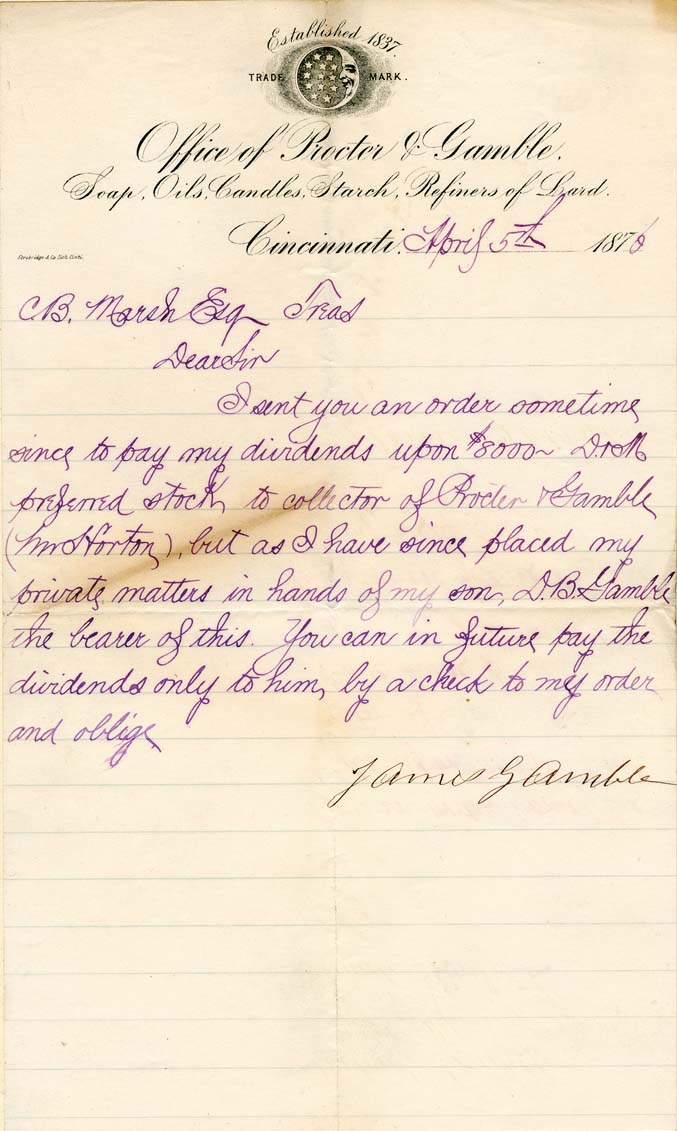 Established 1837.
TRADE MARK.
Office of Procter & Gamble.
Soap, Oils, Candles, Starch, Refiners of Lard.
Cincinnati, April 5th 1876
Strobridge & Co. Lith. Cinti.
C.B. Marsh Esq Treas
Dear Sir
I sent you an order sometime
since to pay my dividends upon $8000 D & M
preferred stock to collector of Procter & Gamble
(Mr Horton), but as I have since placed my
private matters in hands of my son, D.B. Gamble
the bearer of this. You can in future pay the
dividends only to him, by a check to my order
and oblige
James Gamble